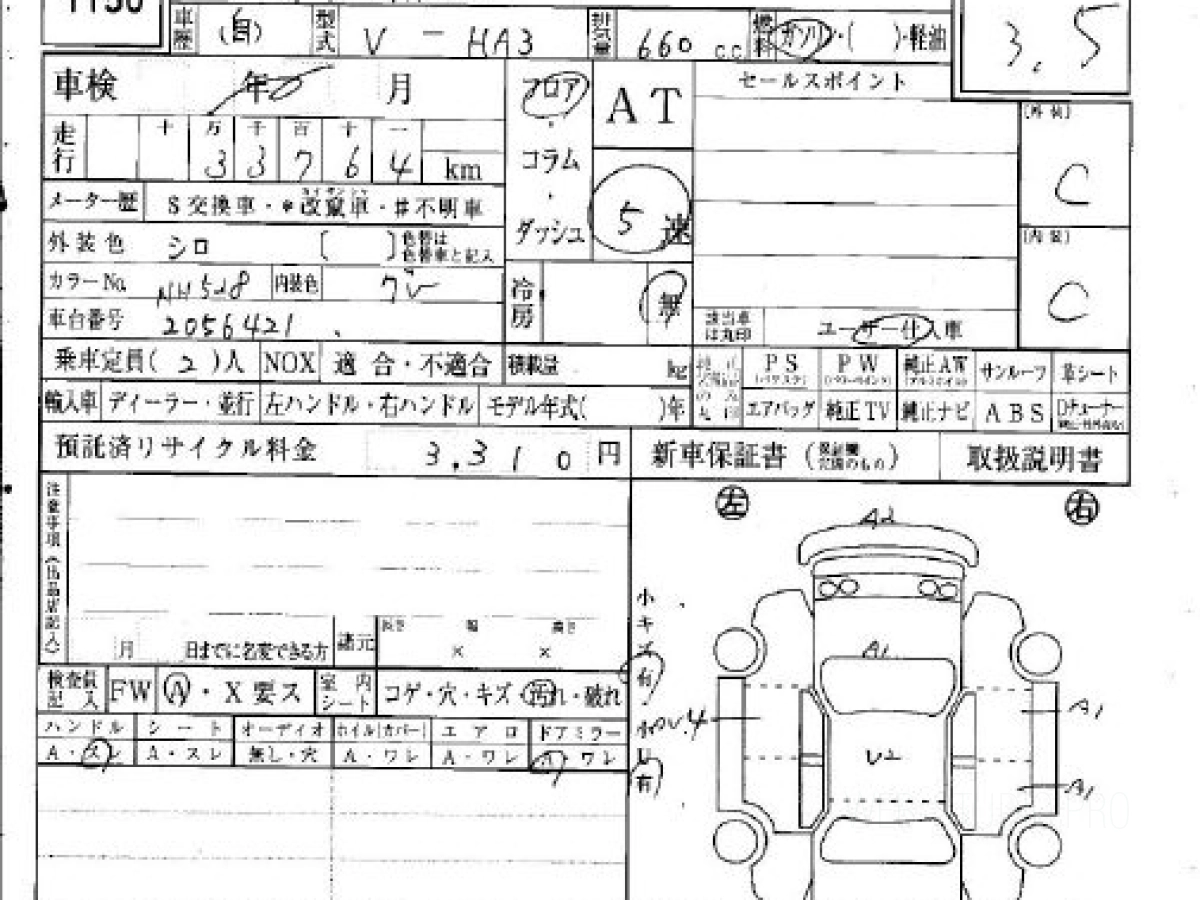 1150
車歴 (自) 型式 V - HA3 排気量 660 c.c. 燃料 ガソリン・( )・軽油 3.5
車検 年 月 フロア・コラム・ダッシュ AT セールスポイント (外装) C
走行 十 万 千 百 十 一
3 3 7 6 4 km
メーター歴 S交換車・*改竄車・#不明車 5速
外装色 シロ [ ] 色替は色替車と記入 (内装) C
カラーNo. NH528 内装色 グレー 冷房 無
車台番号 2056421 該当車は丸印 ユーザー仕入車
乗車定員(2)人 NOX 適合・不適合 積載量 kg PS PW 純正AW サンルーフ 革シート
輸入車 ディーラー・並行 左ハンドル・右ハンドル モデル年式( )年 エアバッグ 純正TV 純正ナビ ABS
預託済リサイクル料金 3,310円 新車保証書 取扱説明書
注意事項(出品店記入) 左 右
A2
小キズ有
月 日までに名変できる方 諸元 長さ 幅 高さ
× ×
A1
検査員記入 FW A・X要ス 室内シート コゲ・穴・キズ・汚れ・破れ
ハンドル シート オーディオ ホイル(カバー) エアロ ドアミラー
A・スレ A・スレ 無し・穴 A・ワレ A・ワレ A・ワレ
A1
U2
有
A1